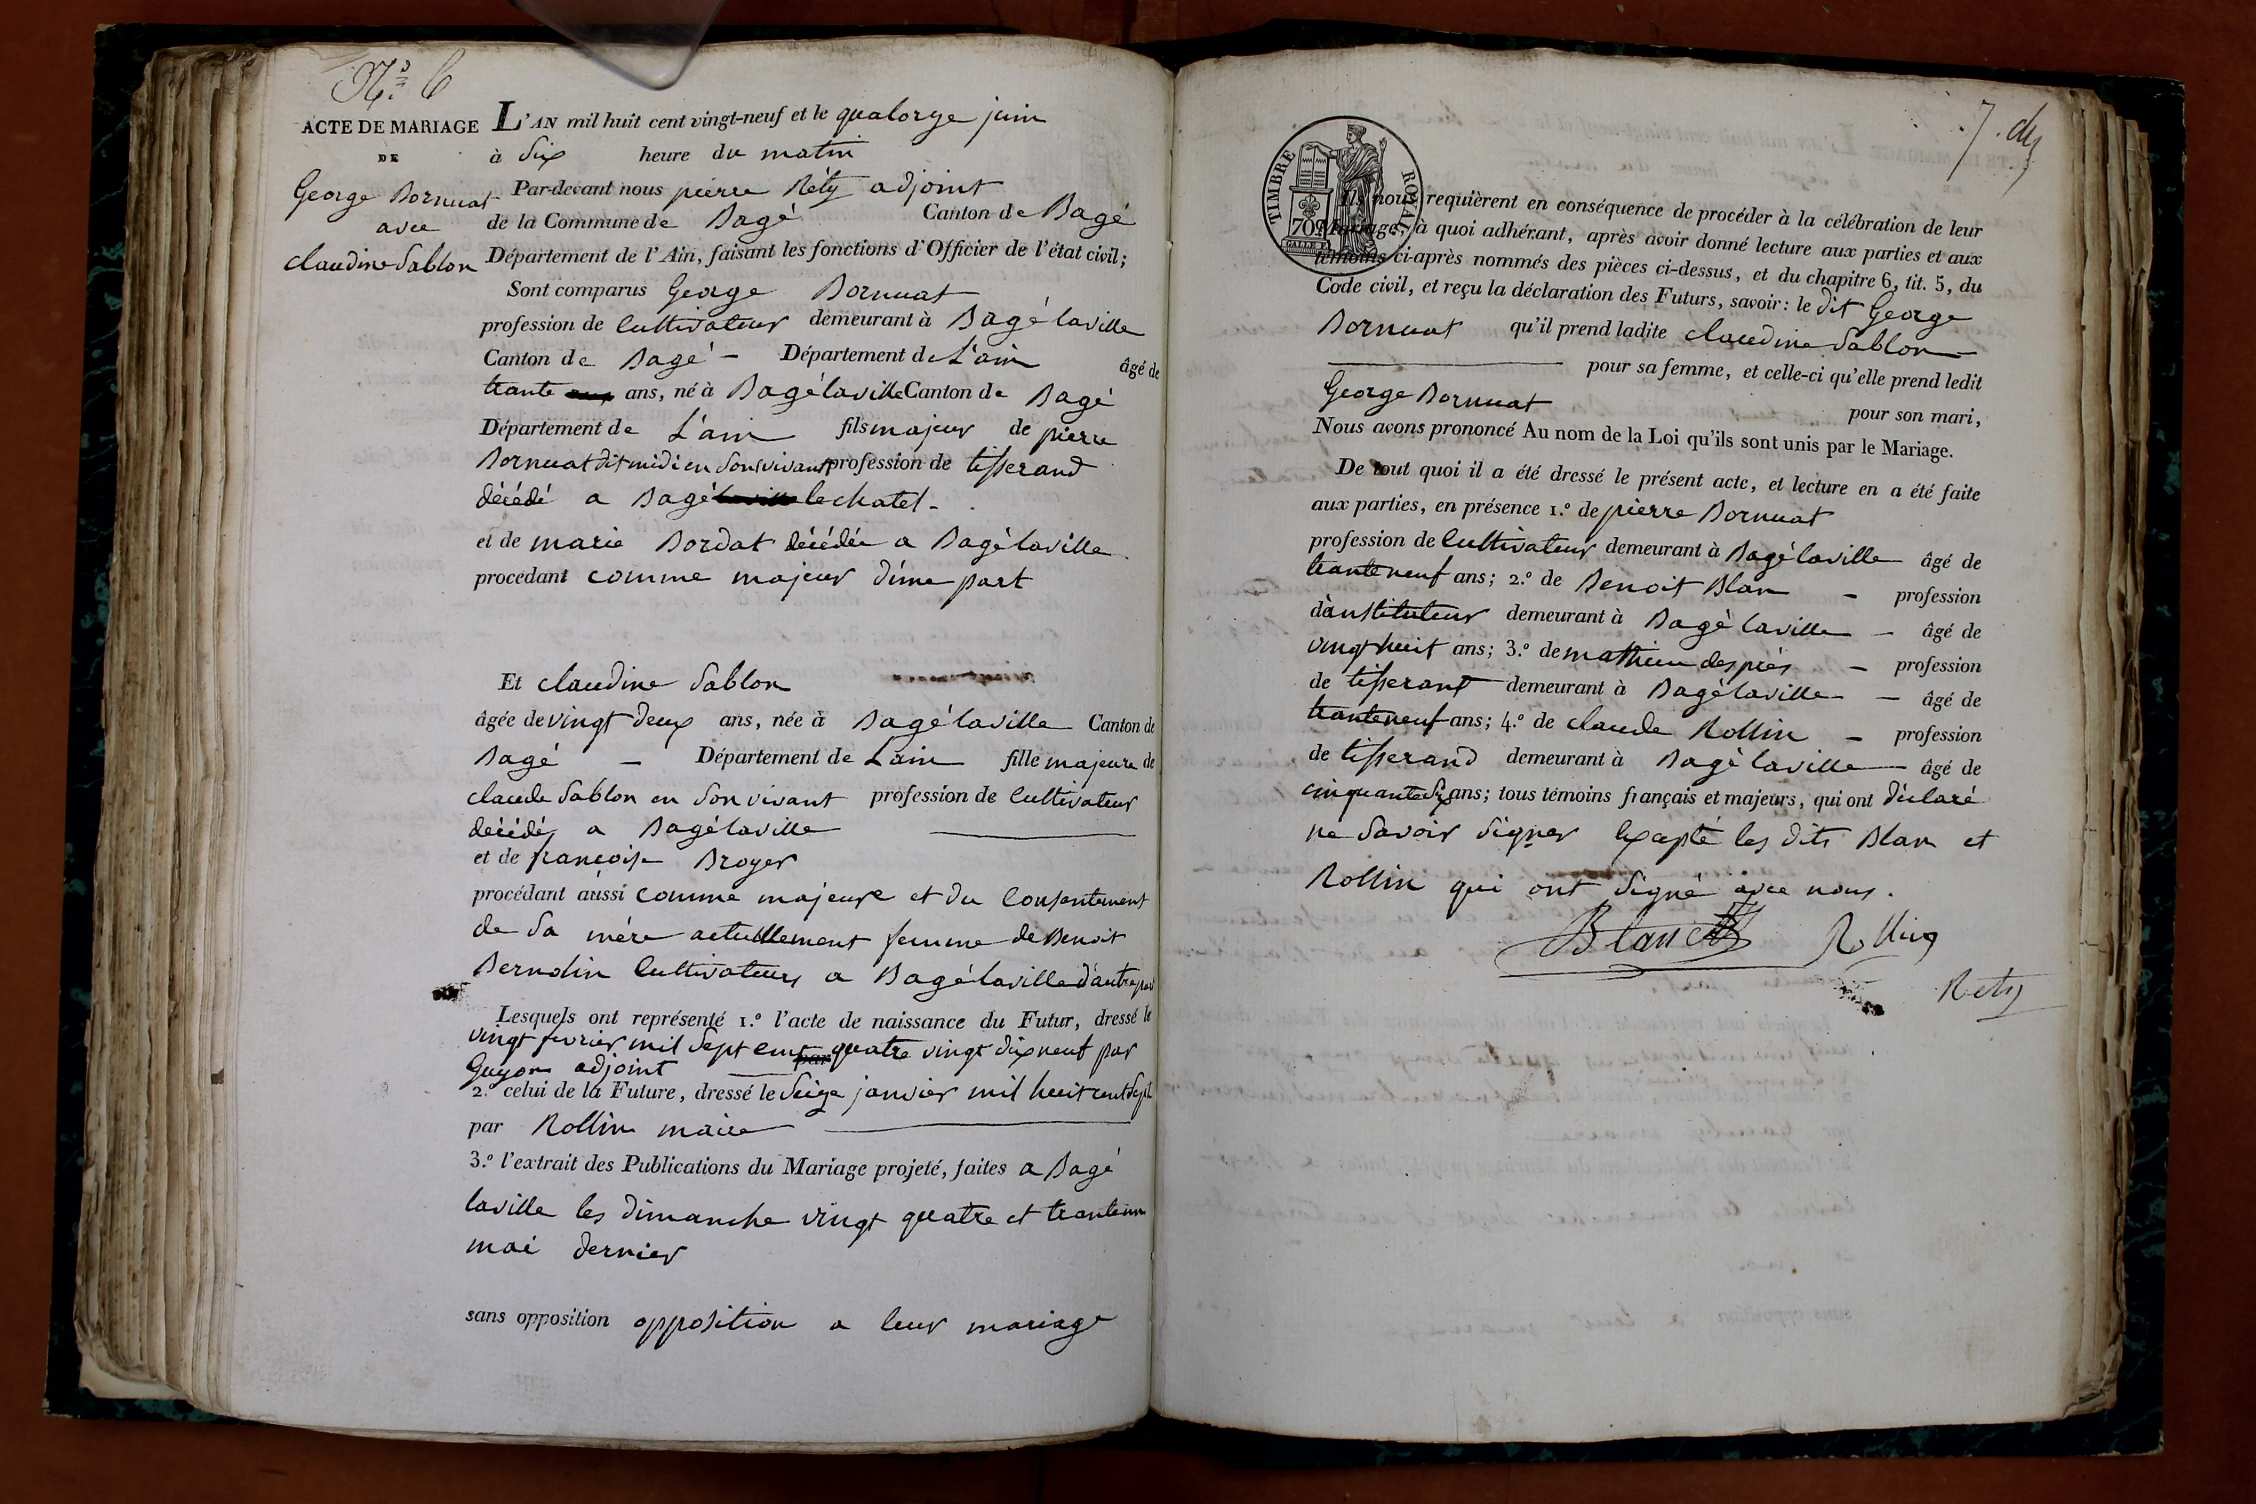 N.° 6
ACTE DE MARIAGE
DE
George Bornuat
avec
claudine Sablon
L'AN mil huit cent vingt-neuf et le quatorze juin
à dix heure du matin
Par-devant nous pierre Réty adjoint
de la Commune de Bagé Canton de Bagé
Département de l'Ain, faisant les fonctions d'Officier de l'état civil;
Sont comparus George Bornuat
profession de Cultivateur demeurant à Bagé laville
Canton de Bagé - Département de L'ain âgé de
trante ans, né à Bagé laville Canton de Bagé
Département de L'ain fils majeur de pierre
Bornuat dit midi en son vivant profession de tisserand
décédé a Bagé lechatel -
et de marie Bordat décédée a Bagé laville
procédant comme majeur d'une part
Et claudine Sablon
âgée de vingt deux ans, née à Bagé laville Canton de
Bagé - Département de Lain fille majeure de
claude Sablon en son vivant profession de Cultivateur
décédé a Bagé laville
et de françoise Broyer
procédant aussi comme majeure et du consentement
de sa mère actuellement femme de Benoit
Bernolin Cultivateur a Bagé laville d'autre part
Lesquels ont représenté 1.° l'acte de naissance du Futur, dressé le
vingt fevrier mil sept cent par quatre vingt dix neuf par
Guyon adjoint
2.° celui de la Future, dressé le seize janvier mil huit cent sept
par Rollin maire
3.° l'extrait des Publications du Mariage projeté, faites a Bagé
laville les dimanche vingt quatre et trante un
mai dernier
sans opposition opposition a leur mariage
7.
TIMBRE ROYAL
70
Ils nous requièrent en conséquence de procéder à la célébration de leur
Mariage; à quoi adhérant, après avoir donné lecture aux parties et aux
témoins ci-après nommés des pièces ci-dessus, et du chapitre 6, tit. 5, du
Code civil, et reçu la déclaration des Futurs, savoir: le dit George
Bornuat qu'il prend ladite claudine Sablon
pour sa femme, et celle-ci qu'elle prend ledit
George Bornuat pour son mari,
Nous avons prononcé Au nom de la Loi qu'ils sont unis par le Mariage.
De tout quoi il a été dressé le présent acte, et lecture en a été faite
aux parties, en présence 1.° de pierre Bornuat
profession de Cultivateur demeurant à Bagé laville âgé de
trante neuf ans; 2.° de Benoit Blan - profession
d'instituteur demeurant à Bagé laville - âgé de
vingt huit ans; 3.° de mathieu desprès - profession
de tisserant demeurant à Bagé laville - âgé de
trante neuf ans; 4.° de claude Rollin - profession
de tisserand demeurant à Bagé laville - âgé de
cinquante six ans; tous témoins français et majeurs, qui ont déclaré
ne savoir signer Exapté les dits Blan et
Rollin qui ont signé avec nous.
Blanc Rollin
Rety